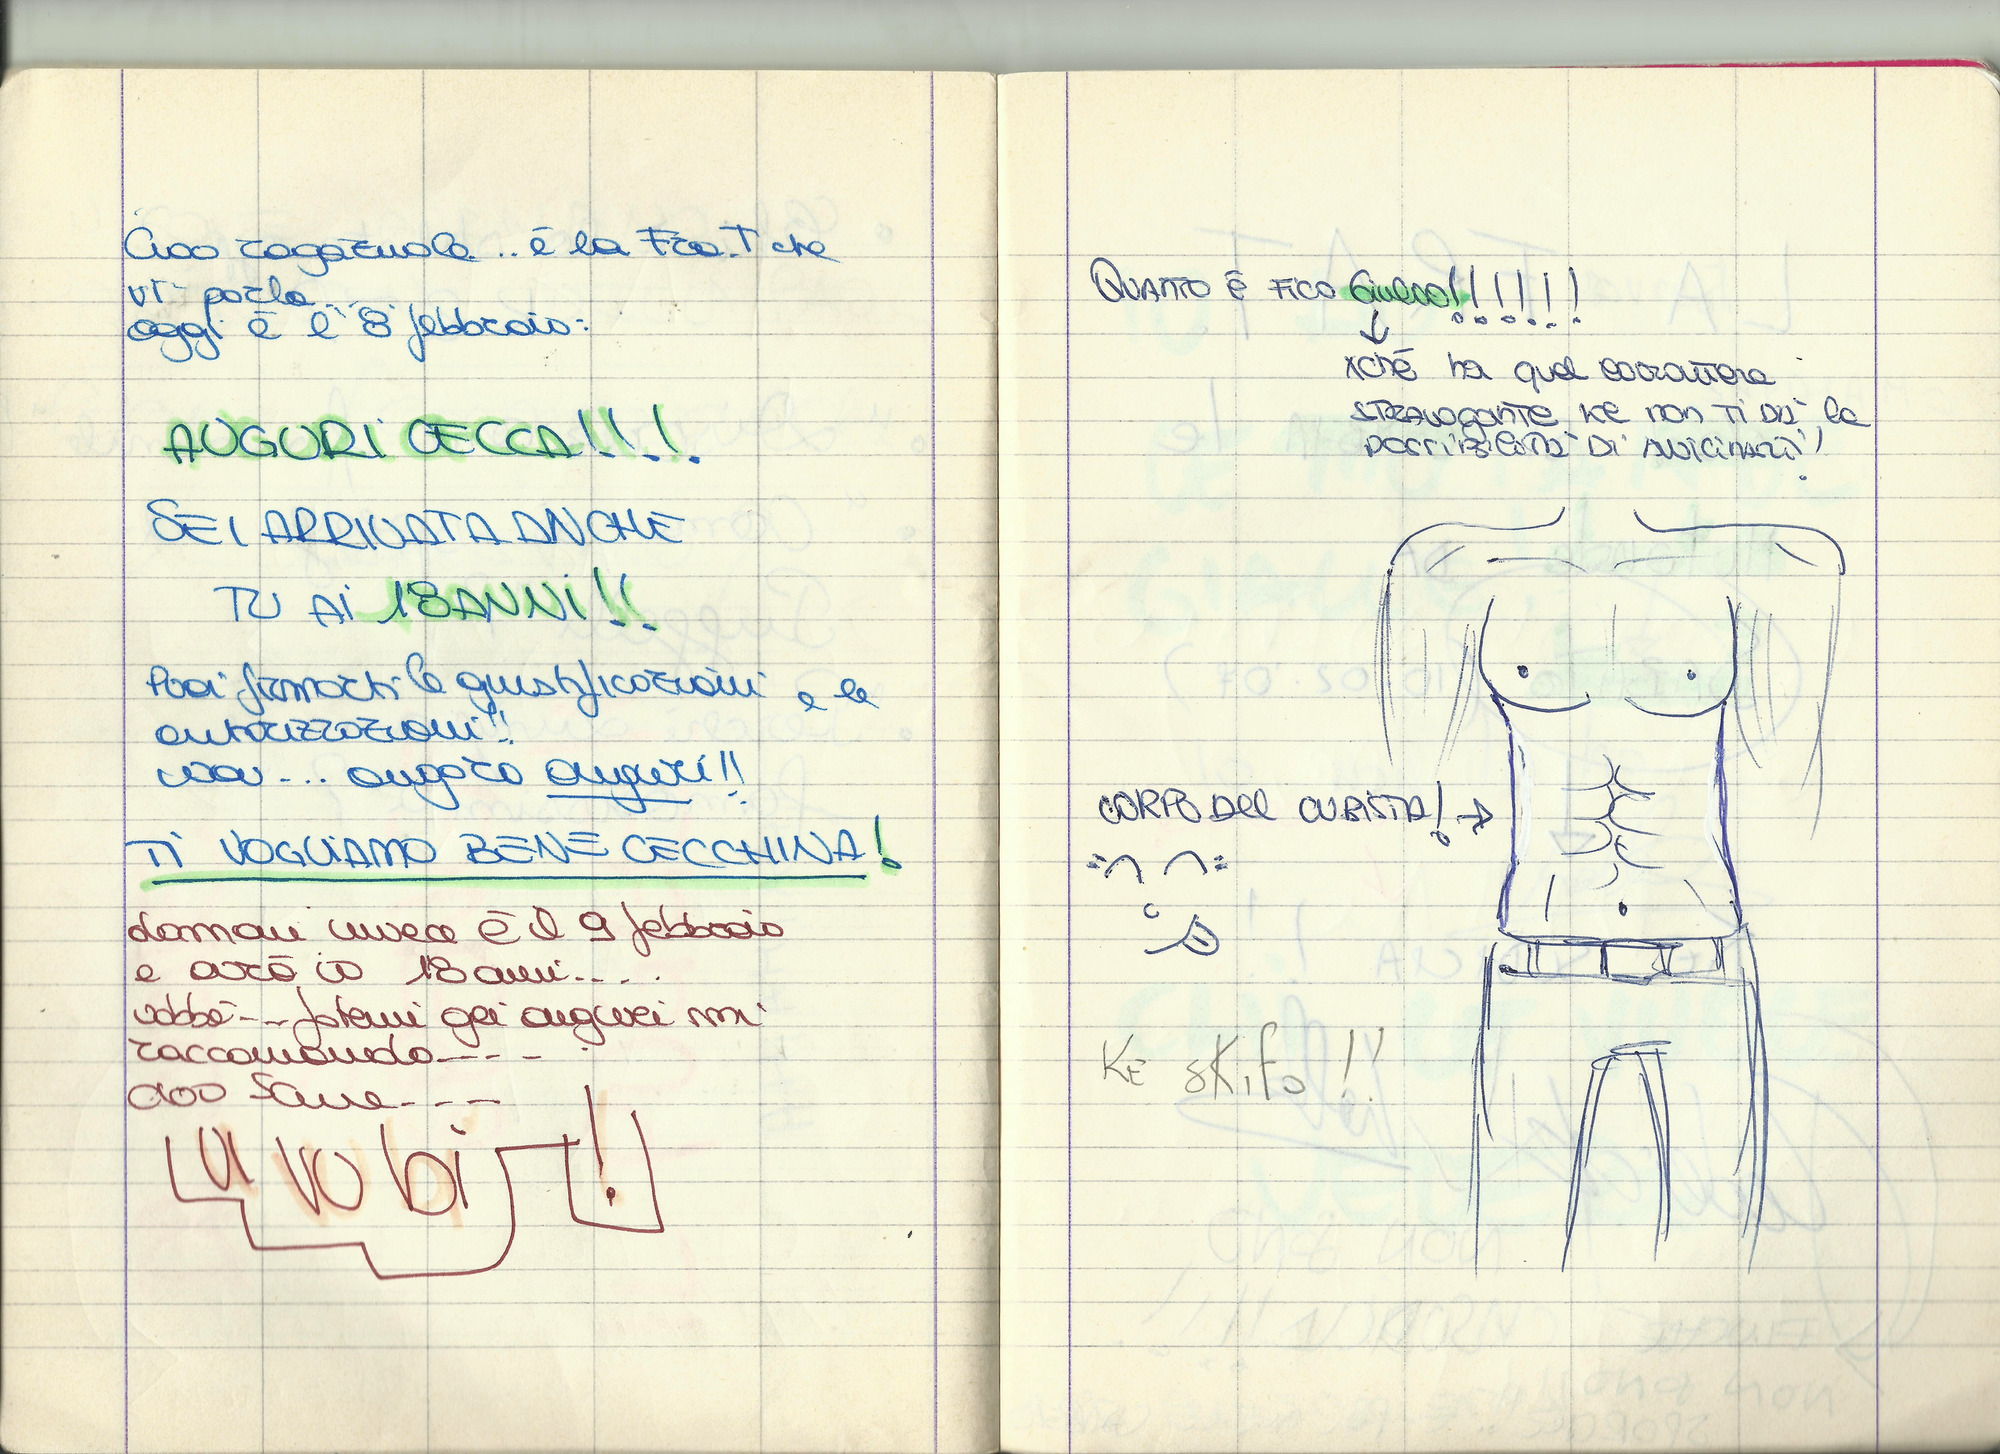 Ciao ragazuole... è la Fra.T che
vi parla...
oggi è l'8 febbraio:
AUGURI CECCA!!!
SEI ARRIVATA ANCHE
TU AI 18 ANNI!!
Puoi firmarti le giustificazioni e le
autorizzazioni!!
ciao... ancora auguri!!
TI VOGLIAMO BENE CECCHINA!
domani invece è il 9 febbraio
e avrò io 18 anni....
vabbè--- fatemi gli auguri mi
raccomando----
ciao
vi vo bi!
QUANTO È FICO !!!!!!
xchè ha quel carattere
stravagante ke non ti dà la
possibilità di avvicinarti!
CORPO DEL CUBISTA! →
KE SKIFO!!